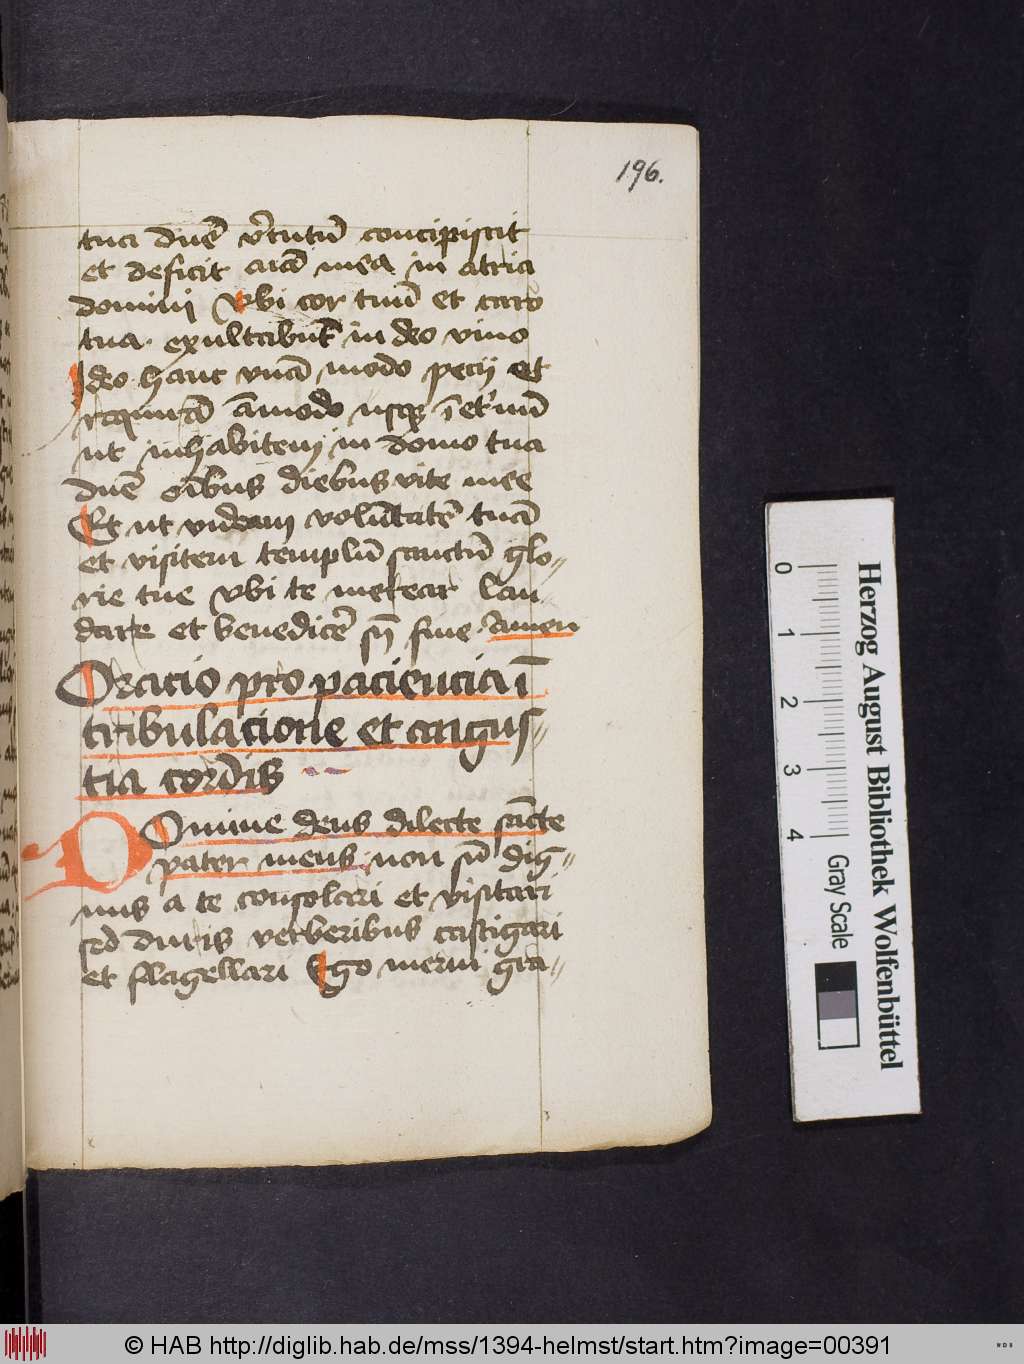 196.
tua dn̄e v̓tutū concipiscit
et deficit aīa mea in atria
domini Vbi cor tuū et caro
tua exultabūt in deo viuo
Ideo hanc vnā modo pecij et
requirā āmodo usq; ī et'nū
ut inhabitem in domo tua
dn̄e oībus diebus vite mee
Et ut videam volūtatē tuā
et visitem templū sanctū glo-
rie tue vbi te merear lau
dare et benedicēr sn̄ fine Amen
Oracio pro paciencia ī
tribulacione et angus-
tia cordis
Domine deus dilecte sācte
pater meus non sū dig-
nus a te consolari et visitari
sed duris verberibus castigari
et flagellari Ego merui gra-
Herzog August Bibliothek Wolfenbüttel
0 1 2 3 4 Gray Scale
© HAB http://diglib.hab.de/mss/1394-helmst/start.htm?image=00391